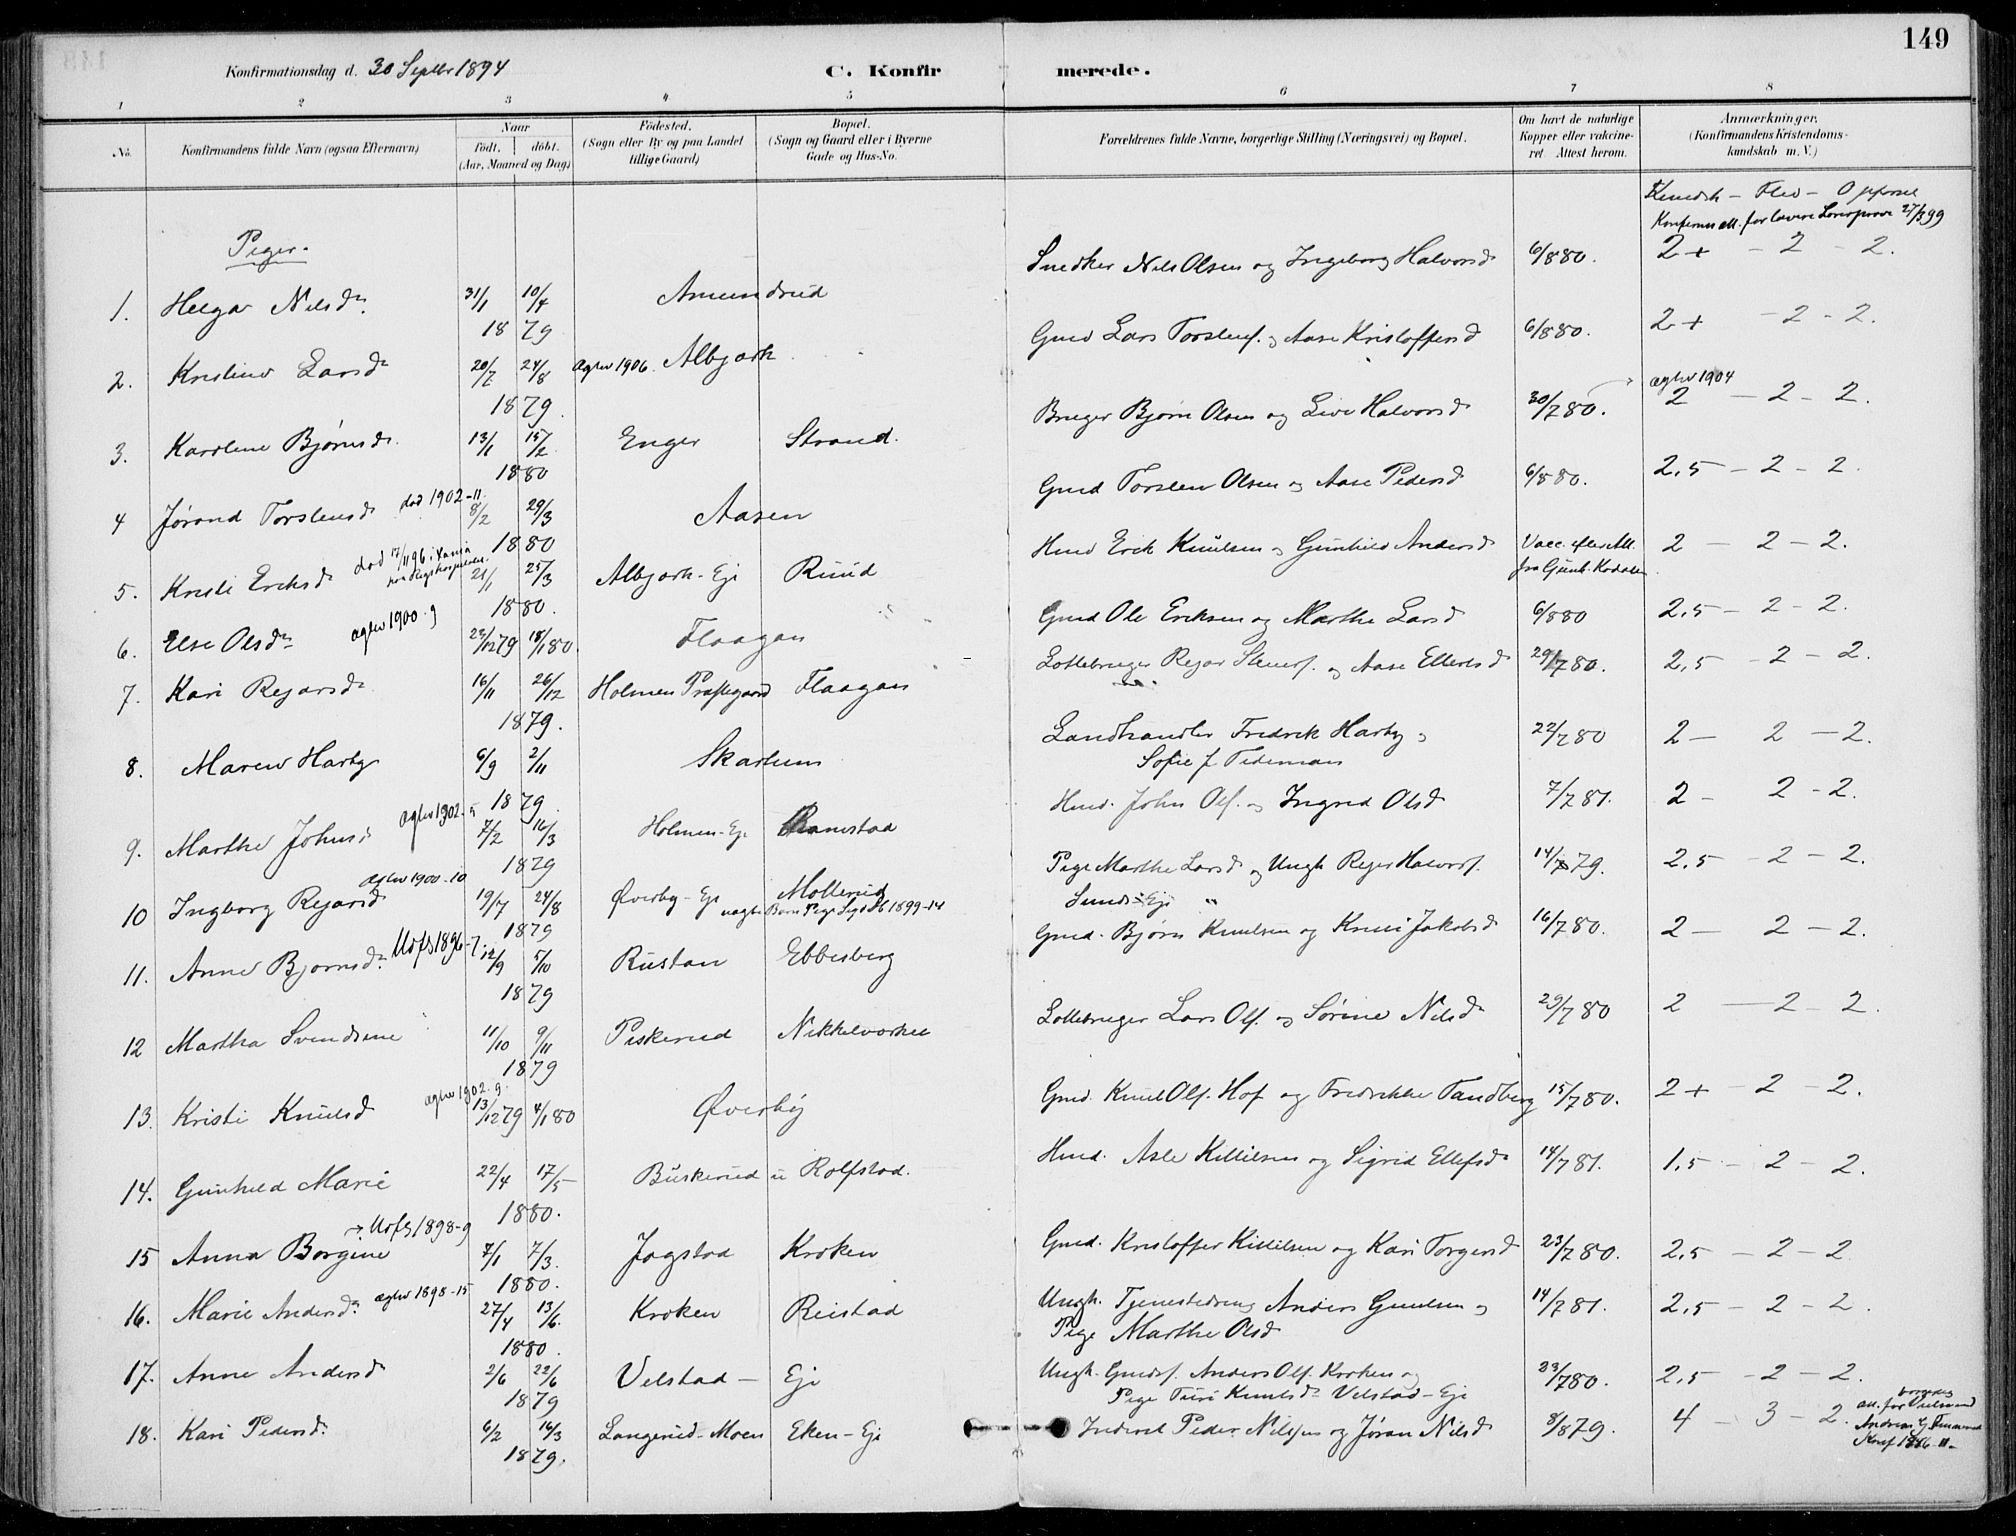 149
Konfirmationsdag d. 30 Septbr 1894 C. Konfirmerede.
1 2 3 4 5 6 7 8
No. Konfirmandens fulde Navn (ogsaa Efternavn) Naar födt. döbt. (Aar, Maaned og Dag) Födested. (Sogn eller By og paa Landet tillige Gaard) Bopæl. (Sogn og Gaard eller i Byerne Gade og Hus-No. Forældrenes fulde Navne, borgerlige Stilling (Næringsvei) og Bopæl. Om havt de naturlige Kopper eller vaccineret Attest herom. Anmærkninger. (Konfirmandens Kristendomskundskab m. V.)
Kundsk - Flid - Opførsel
Konferms att. for lavere Lærerprøve 27/3 99
Piger.
1. Helga Nilsd. 31/1 10/4 1879 Amundrud Snedker Nils Olsen og Ingeborg Halvorsd 6/8 80. 2+ - 2 - 2.
2. Kristine Larsd 20/7 24/8 1879. Agtv 1906. Albjørk Gmd Lars Torstens. og Aase Kristoffersd 6/8 80. 2+ - 2 - 2.
3. Karoline Bjørnsd. 13/1 15/2 1880 Enger Strand. Bruger Bjørn Olsen og Live Halvorsd 30/7 80. ægtv 1904 2 - 2 - 2.
4 Jørand Torstensd død 1902-11. 8/2 29/3 1880 Aasen Gmd Torsten Olsen og Aase Pedersd 6/8 80. 2,5 - 2 - 2.
5. Kristi Eriksd død 17/11 96 21/1 25/3 1880. Albjørk-Eje Ruud Hmd Erik Knutsen og Gunhild Andersd Vacc. efter Att. fra Gunb. 2 - 2 - 2.
6. Else Olsd agtv 1900.9 23/12 79 18/1 80. Flaagan Gmd Ole Eriksen og Marthe Larsd 6/8 80 2,5 - 2 - 2.
7. Kari Rejarsd 16/11 26/12 1879. Holmen Præstegaard Flaagan Lottebruger Rejar Steners. og Aase Ellevsd 29/7 80. 2,5 - 2 - 2.
8. Maren Harby 6/9 2/11 1879. Skartum Landhandler Fredrik Harby og Sofie f. Tidemann 22/7 80 2 - 2 - 2.
9. Marthe Johnsd agtv 1902-5 7/2 16/3 1879 Holmen-Eje Ramstad Hmd. John Ols. og Ingrid Olsd 7/7 81. 2 - 2 - 2.
10 Ingborg Rejarsd Agtv 1900-10 19/7 24/8 1879 Øverby-Eje Møllerud uægte Barn Pige 1899-14 Pige Marthe Larsd og Ungk Rejer Halvors. Sunds-Eje 14/7 79. 2,5 - 2 - 2.
11. Anne Bjørnsd. Udfs 1896-7. 12/9 5/10 1879 Rustan Ebbesberg Gmd. Bjørn Knutsen og Knui Jakobsd 16/7 80. 2 - 2 - 2.
12 Martha Svendsine 11/10 9/11 1879 Piskerud Nikkelværket Lottebruger Lars Ols. og Sørine Nilsd 29/7 80 2 - 2 - 2.
13. Kristi Knutsd agtv 1902.9. 13/12 79 4/1 80 Øverby Gmd. Knut Ols. Hof og Fredrikke Tandberg 15/7 80. 2+ - 2 - 2.
14. Gunhild Marie 22/4 17/5 1880. Buskerud u Rolfstad. Hmd. Asle Kittilsen og Sigrid Ellefsd 14/7 81. 1,5 - 2 - 2.
15 Anna Borgine Udfs 1898-9 7/1 7/3. 1880. Jogstad Kroken Gmd. Kristoffer Kittilsen og Kari Torgersd 23/7 80. 2,5 - 2 - 2
16. Marie Andersd. ægtv 1898-15 27/4 13/6. 1880. Kroken Reistad Ungk. Tjenestedreng Anders Gundsen og Pige Marthe Olsd 14/7 81. 2,5 - 2 - 2.
17. Anne Andersd 2/6 22/6 1879 Velstad - Eje Ungk. Gmds. Anders Ols. Kroken og Pige Turi Knutsd Velstad-Eje 23/7 80. 2,5 - 2 - 2.
18. Kari Pedersd. 6/2 16/3 1879. Langerud-Moen Eken-Eje Inderst Peder Nilssen og Jøran Nilsd 8/8 79. 4 - 3 - 2.